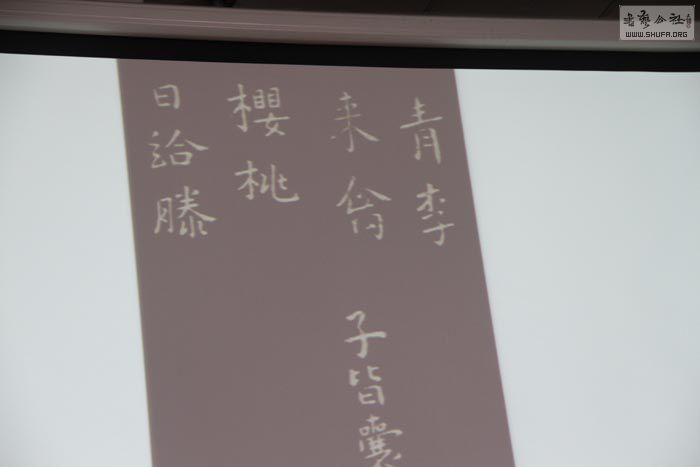 青李
来禽 子皆囊
櫻桃
日給滕
書藝公社
WWW.SHUFA.ORG